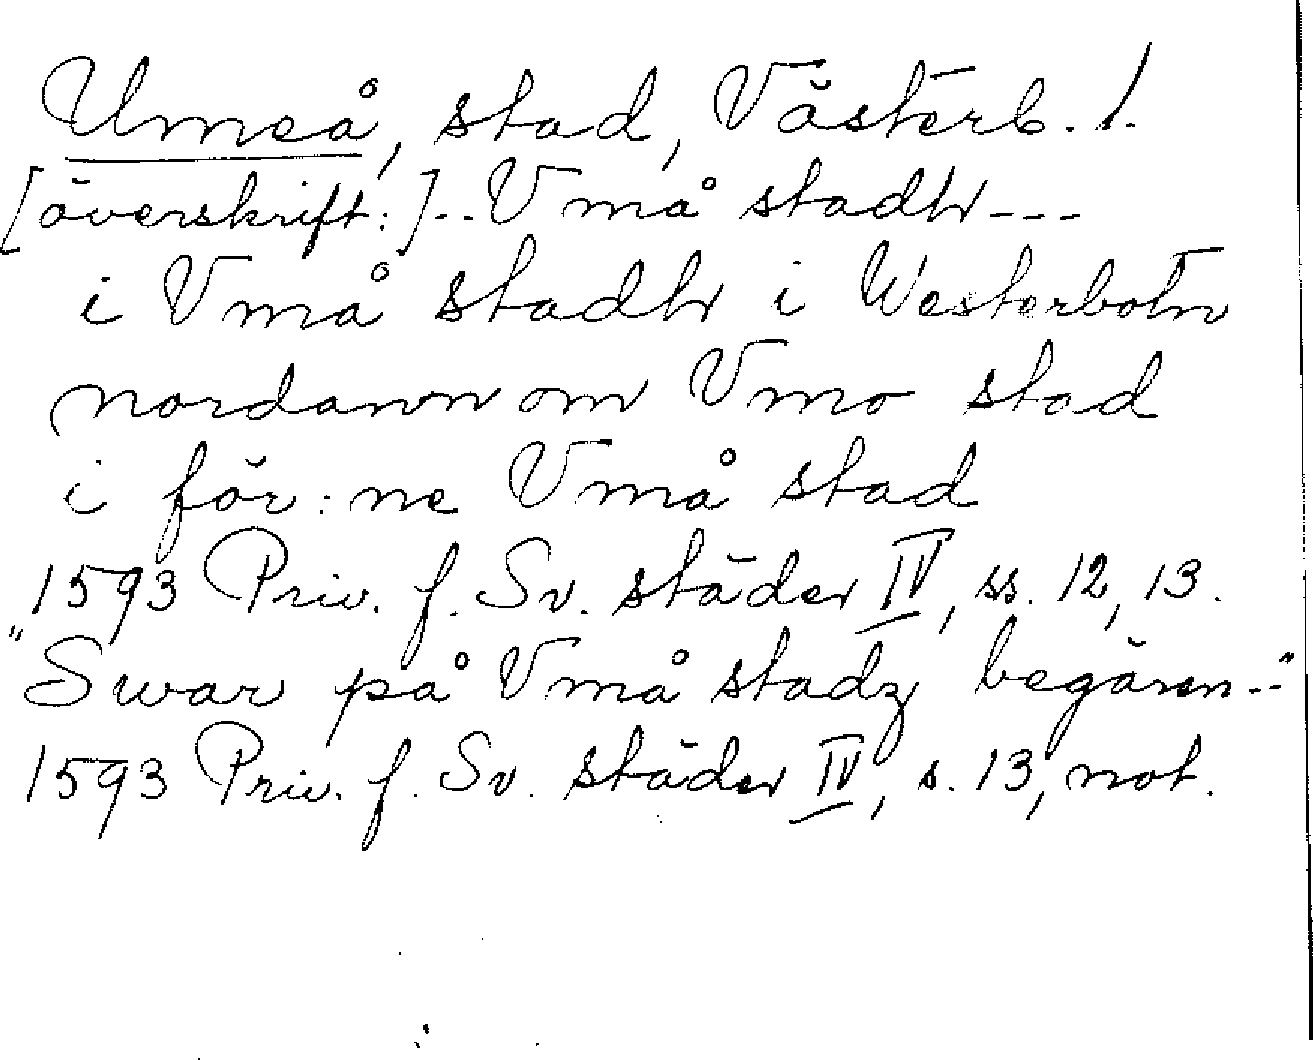 Umeå, stad, Västerb. l.
[överskrift:]-- Vmå stadh ---
i Vmå stadh i Westerbotn
nordann om Vmo stad
i för:ne Vmå stad
1593 Priv. f. Sv. städer IV, ss. 12, 13.
"Swar på Vmå stadz begären --"
1593 Priv. f. Sv. städer IV, s. 13, not.